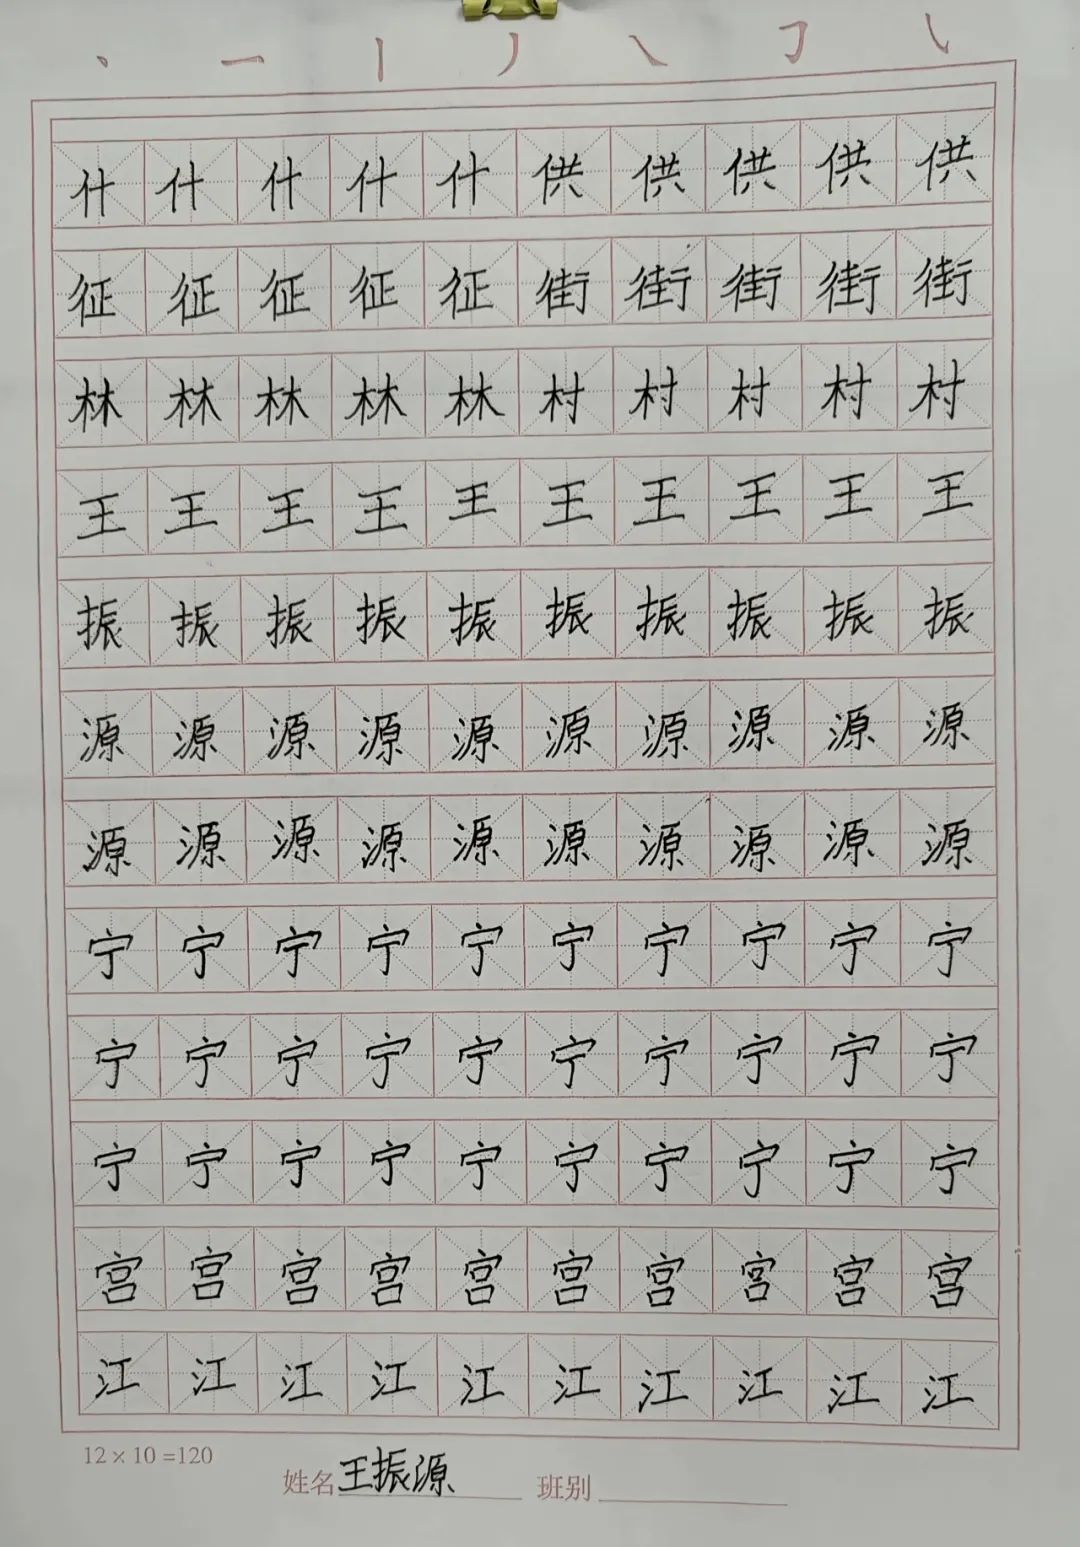 什什什什什供供供供供
征征征征征街街街街街
林林林林林村村村村村
王王王王王王王王王王
振振振振振振振振振振
源源源源源源源源源源
源源源源源源源源源源
宁宁宁宁宁宁宁宁宁宁
宁宁宁宁宁宁宁宁宁宁
宁宁宁宁宁宁宁宁宁宁
宫宫宫宫宫宫宫宫宫宫
江江江江江江江江江江
12×10=120
姓名 王振源 班别